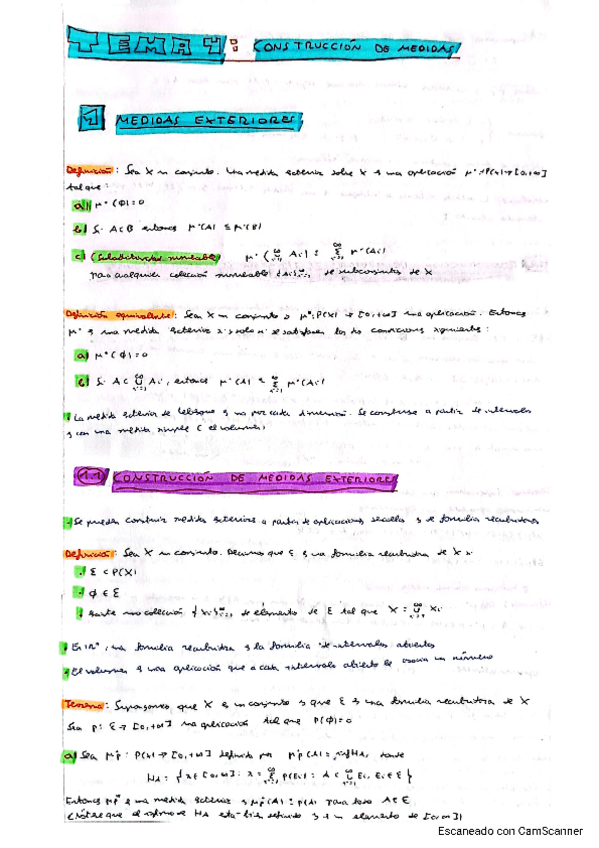 TEMA 4: CONSTRUCCIÓN DE MEDIDAS
1 MEDIDAS EXTERIORES
Definición: Sea X un conjunto. Una medida exterior sobre X es una aplicación μ*: P(X) → [0,+∞]
tal que:
a) μ*(∅)=0
b) Si A⊂B entonces μ*(A) ≤ μ*(B)
c) (Subaditividad numerable) μ*(⋃ Ai) ≤ Σ μ*(Ai)
para cualquier colección numerable {Ai} de subconjuntos de X
Definición equivalente: Sea X un conjunto y μ*: P(X) → [0,+∞] una aplicación. Entonces
μ* es una medida exterior si y solo si se satisfacen las dos condiciones siguientes:
a) μ*(∅)=0
b) Si A⊂ ⋃ Ai, entonces μ*(A) ≤ Σ μ*(Ai)
La medida exterior de Lebesgue es una por cada dimensión. Se construye a partir de intervalos
y con una medida simple (el volumen)
1.1 CONSTRUCCIÓN DE MEDIDAS EXTERIORES
Se pueden construir medidas exteriores a partir de aplicaciones sencillas y de familias recubridoras
Definición: Sea X un conjunto. Decimos que ℰ es una familia recubridora de X si:
ℰ ⊂ P(X)
∅ ∈ ℰ
Existe una colección {Xi} de elementos de ℰ tal que X = ⋃ Xi
En ℝⁿ, una familia recubridora es la familia de intervalos abiertos
El volumen es una aplicación que a cada intervalo abierto le asocia un número
Teorema: Supongamos que X es un conjunto y que ℰ es una familia recubridora de X
Sea p: ℰ → [0,+∞] una aplicación tal que p(∅)=0
a) Sea μ*p: P(X) → [0,+∞] definida por μ*p(A) = inf HA, donde
HA = {x ∈ [0,∞]: x = Σ p(Ei): A ⊂ ⋃ Ei, Ei ∈ ℰ}
Entonces μ*p es una medida exterior y μ*p(A) ≤ p(A) para todo A ∈ ℰ
(Nótese que el ínfimo de HA está bien definido y es un elemento de [0,∞])
Escaneado con CamScanner